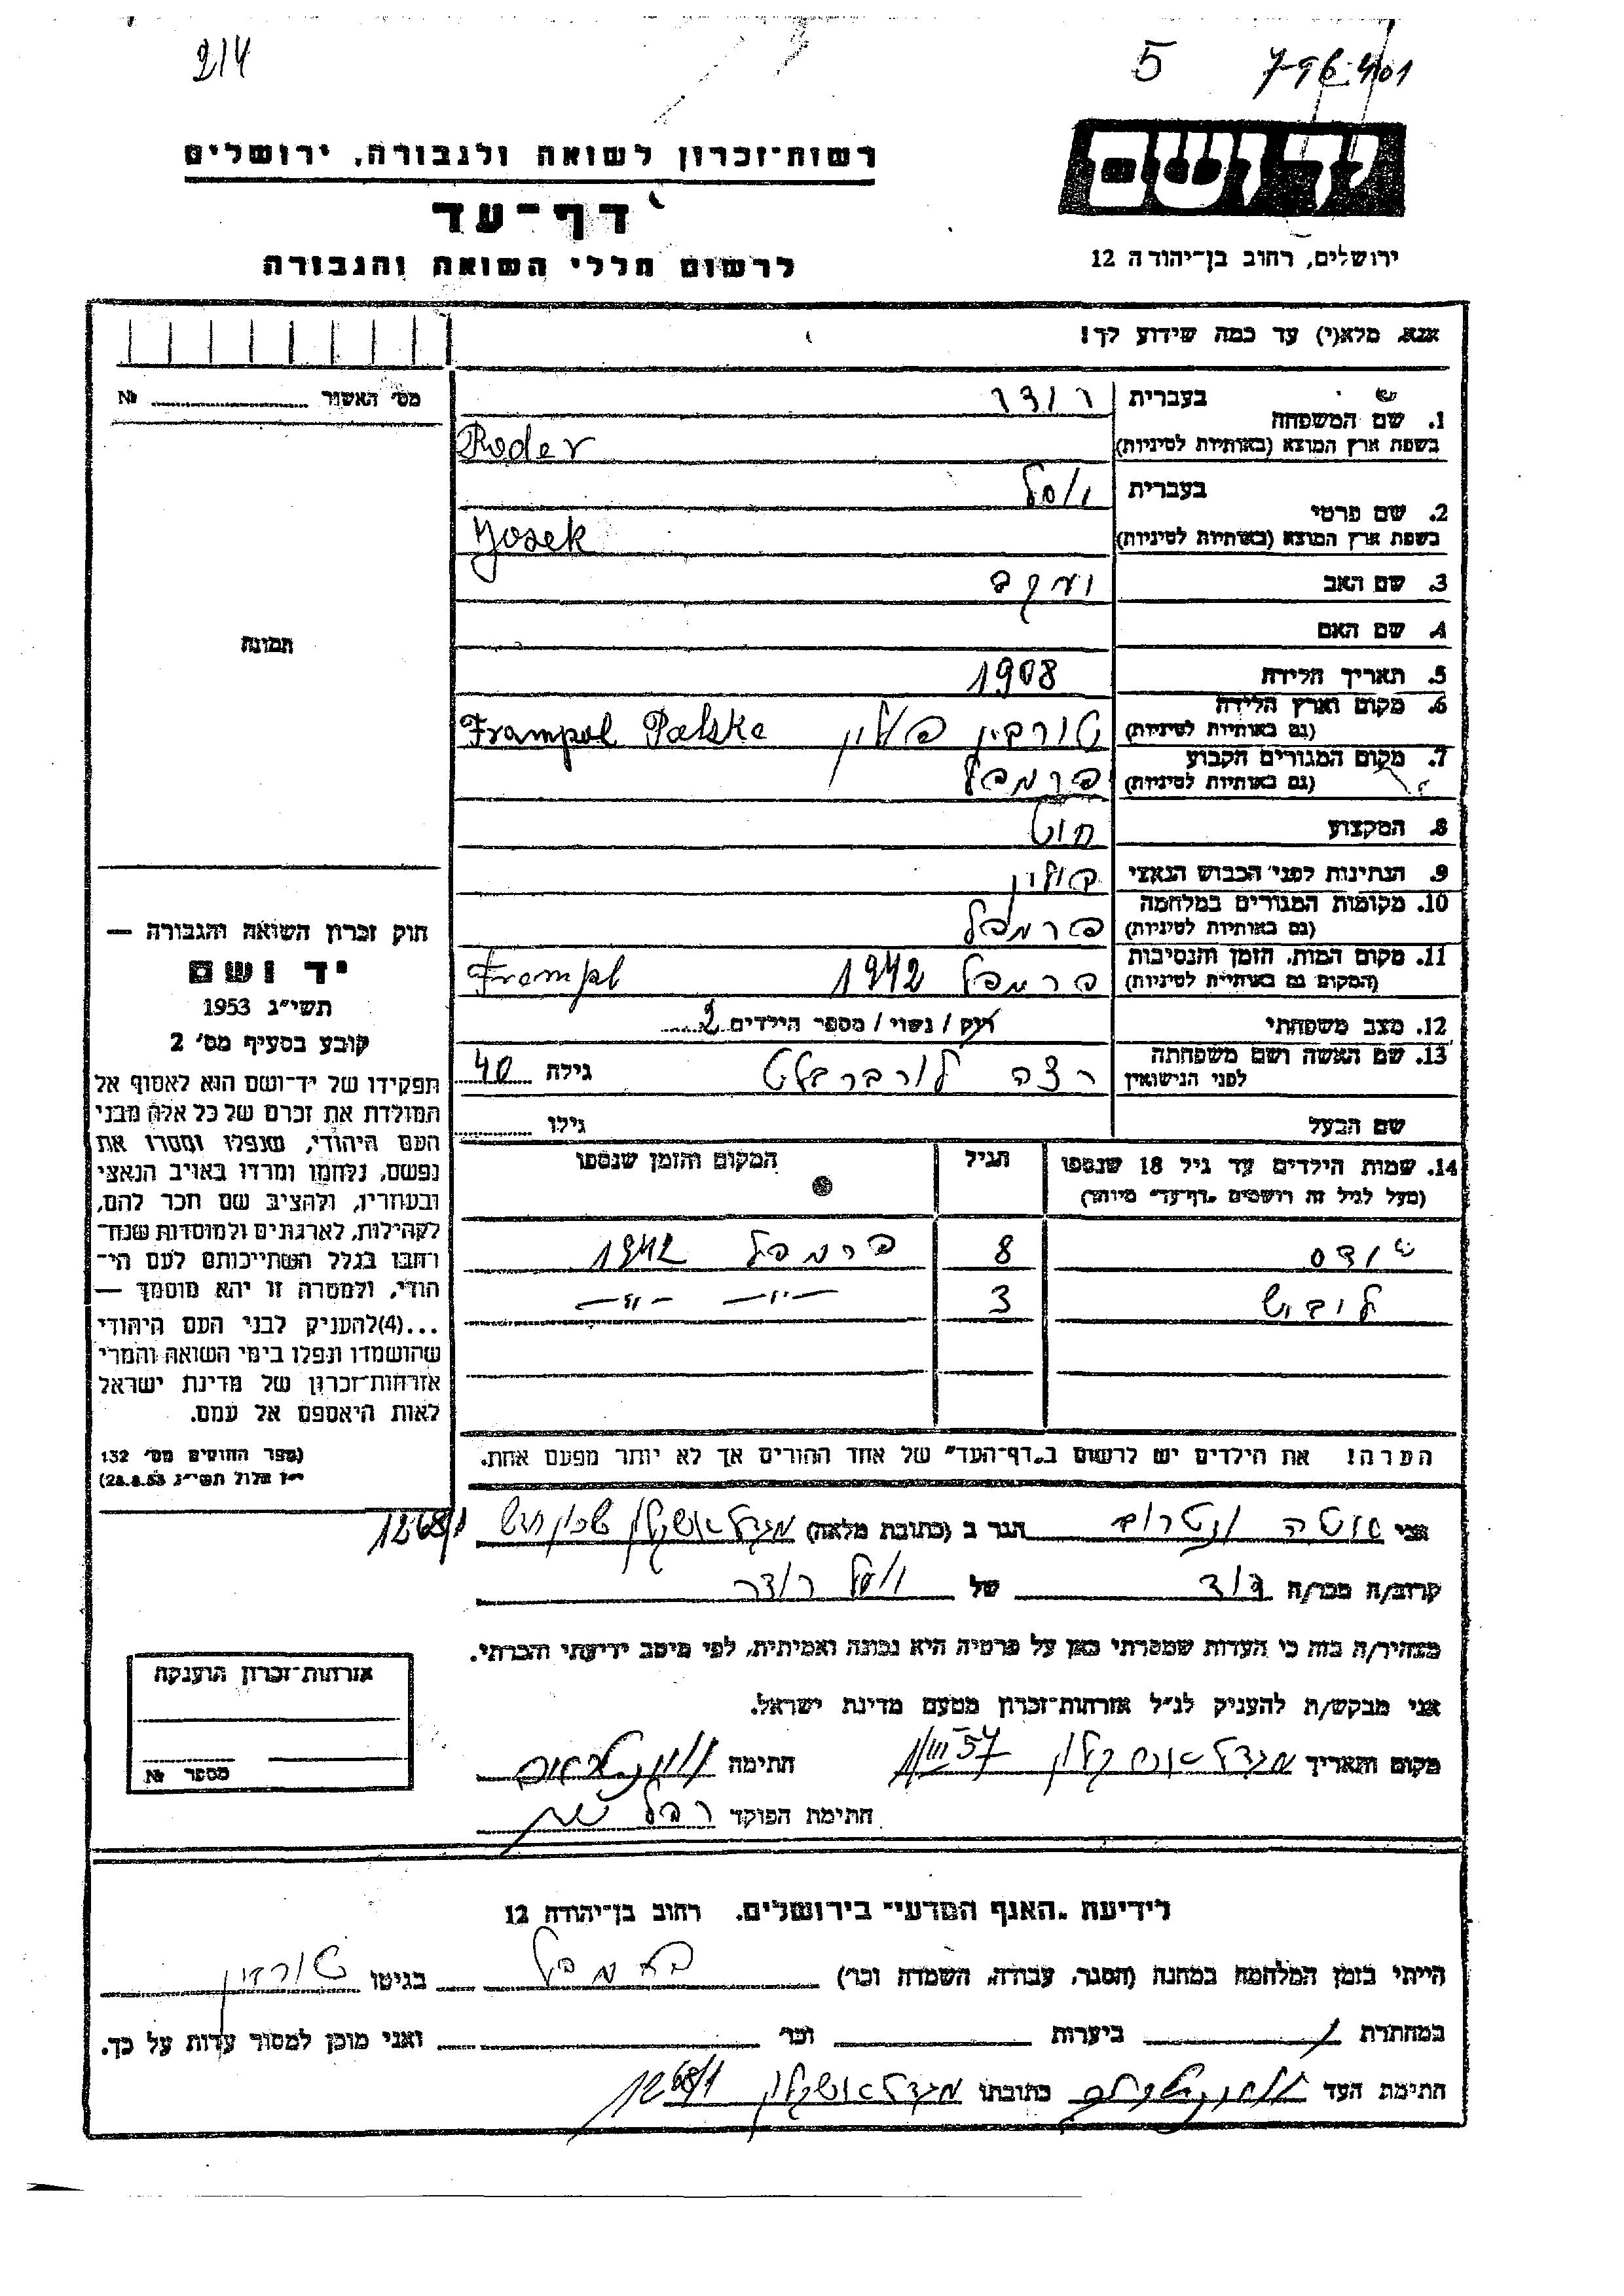 2/4
5 7-96-401
יד ושם
ירושלים, רחוב בן־יהודה 12
רשות־זכרון לשואה ולגבורה, ירושלים
דף־עד
לרשום חללי השואה והגבורה
אנא, מלא(י) עד כמה שידוע לך!
מס׳ האשור № 
1. שם המשפחה בעברית רודר
בשפת ארץ המוצא (באותיות לטיניות) Roder
2. שם פרטי בעברית יוסל
בשפת ארץ המוצא (באותיות לטיניות) Yosek
3. שם האב יעקב
4. שם האם
5. תאריך הלידה 1908
6. מקום וארץ הלידה טורבין פולין Frampol Polska
(גם באותיות לטיניות)
7. מקום המגורים הקבוע פרמפל
(גם באותיות לטיניות)
8. המקצוע
9. הנתינות לפני הכבוש הנאצי פולין
10. מקומות המגורים במלחמה פרמפל
(גם באותיות לטיניות)
11. מקום המות, הזמן והנסיבות פרמפל 1942 Frampl
(המקום גם באותיות לטיניות)
12. מצב משפחתי רווק / נשוי / מספר הילדים 2
13. שם האשה ושם משפחתה לפני הנישואין רצה גילה 40
שם הבעל גילו
14. שמות הילדים עד גיל 18 שנספו הגיל המקום והזמן שנספו
(מעל לגיל זה רושמים „דף־עד״ מיוחד)
8 פרמפל 1942
ליבוש 3 —״— —״—
הערה! את הילדים יש לרשום ב„דף־העד״ של אחד ההורים אך לא יותר מפעם אחת.
תמונה
חוק זכרון השואה והגבורה —
יד ושם
תשי״ג 1953
קובע בסעיף מס׳ 2
תפקידו של יד־ושם הוא לאסוף אל
המולדת את זכרם של כל אלה מבני
העם היהודי, שנפלו ומסרו את
נפשם, נלחמו ומרדו באויב הנאצי
ובעוזריו, ולהציב שם וזכר להם,
לקהילות, לארגונים ולמוסדות שנח־
רבו בגלל השתייכותם לעם הי־
הודי, ולמטרה זו יהא מוסמך —
...(4)להעניק לבני העם היהודי
שהושמדו ונפלו בימי השואה והמרי
אזרחות־זכרון של מדינת ישראל
לאות היאספם אל עמם.
(ספר החוקים מס׳ 132
י״ז אלול תשי״ג 28.8.53)
אני הגר ב (כתובת מלאה) מגדל אשקלון שכון חדש 1268/1
קרוב/ה מכר/ה דוד של יוסל רודר
מצהיר/ה בזה כי העדות שמסרתי כאן על פרטיה היא נכונה ואמיתית, לפי מיטב ידיעתי והכרתי.
אני מבקש/ת להעניק לנ״ל אזרחות־זכרון מטעם מדינת ישראל.
מקום ותאריך מגדל אשקלון 1/III 57 חתימה
חתימת הפוקד
אזרחות־זכרון הוענקה
מספר №
לידיעת „האגף המדעי״ בירושלים, רחוב בן־יהודה 12
הייתי בזמן המלחמה במחנה (הסגר, עבודה, השמדה וכר׳) בגיטו
במחתרת ביערות וכר׳ ואני מוכן למסור עדות על כך.
חתימת העד כתובתו מגדל אשקלון 1268/1